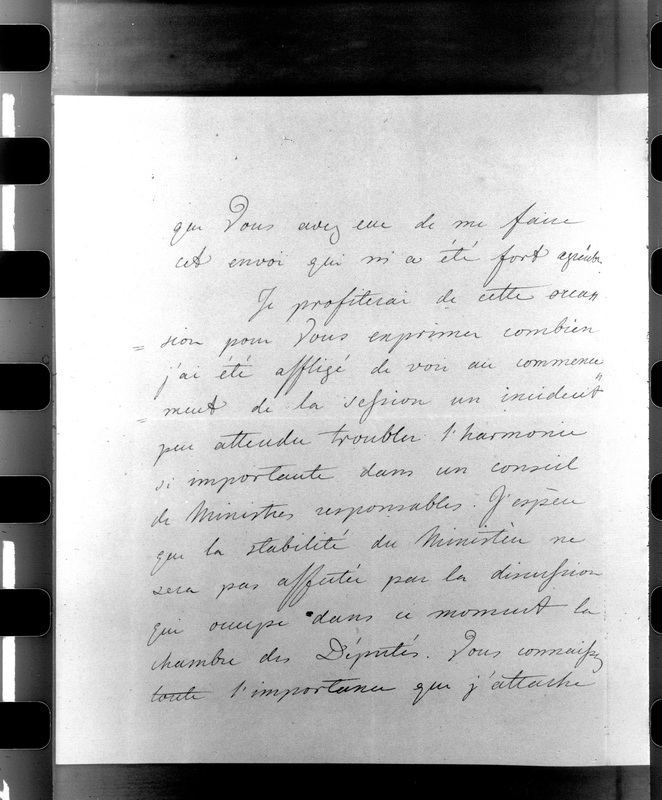 que Vous avez eue de me faire
cet envoi qui m'a été fort agréable.
Je profiterai de cette occa=
=sion pour Vous exprimer combien
j'ai été affligé de voir au commence=
=ment de la session un incident
peu attendu troubler l'harmonie
si importante dans un conseil
de Ministres responsables. J'espère
que la stabilité du Ministère ne
sera pas affectée par la discussion
qui occupe dans ce moment la
chambre des Députés. Vous connaissez
toute l'importance que j'attache